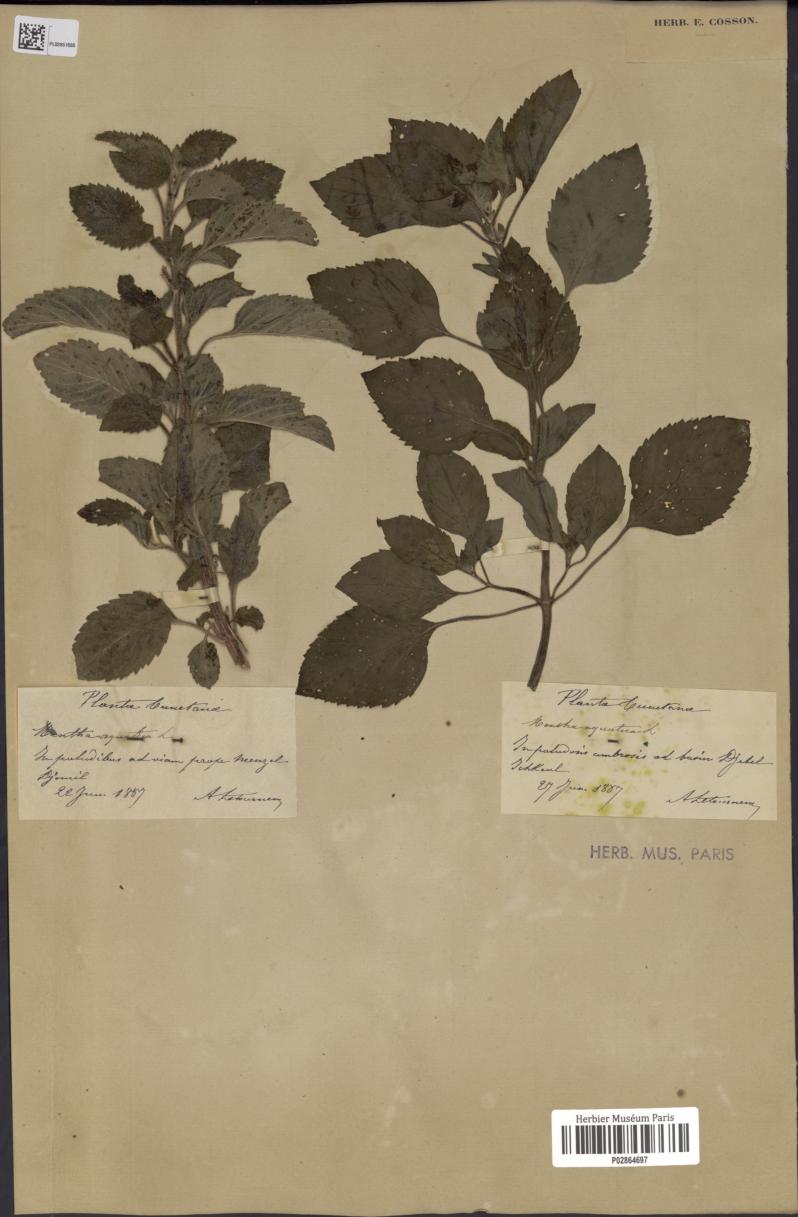 HERB. E. COSSON.
Plantæ Tunetanæ
Mentha aquatica L
In paludibus ad viam prope Menzel
Djemil
22 Jun. 1887 A Letourneux
Plantæ Tunetanæ
Mentha aquatica L
In paludosis umbrosis ad basin Djebel
Ischkeul
27 Jun. 1887 A Letourneux
HERB. MUS. PARIS
Herbier Muséum Paris
P02864697